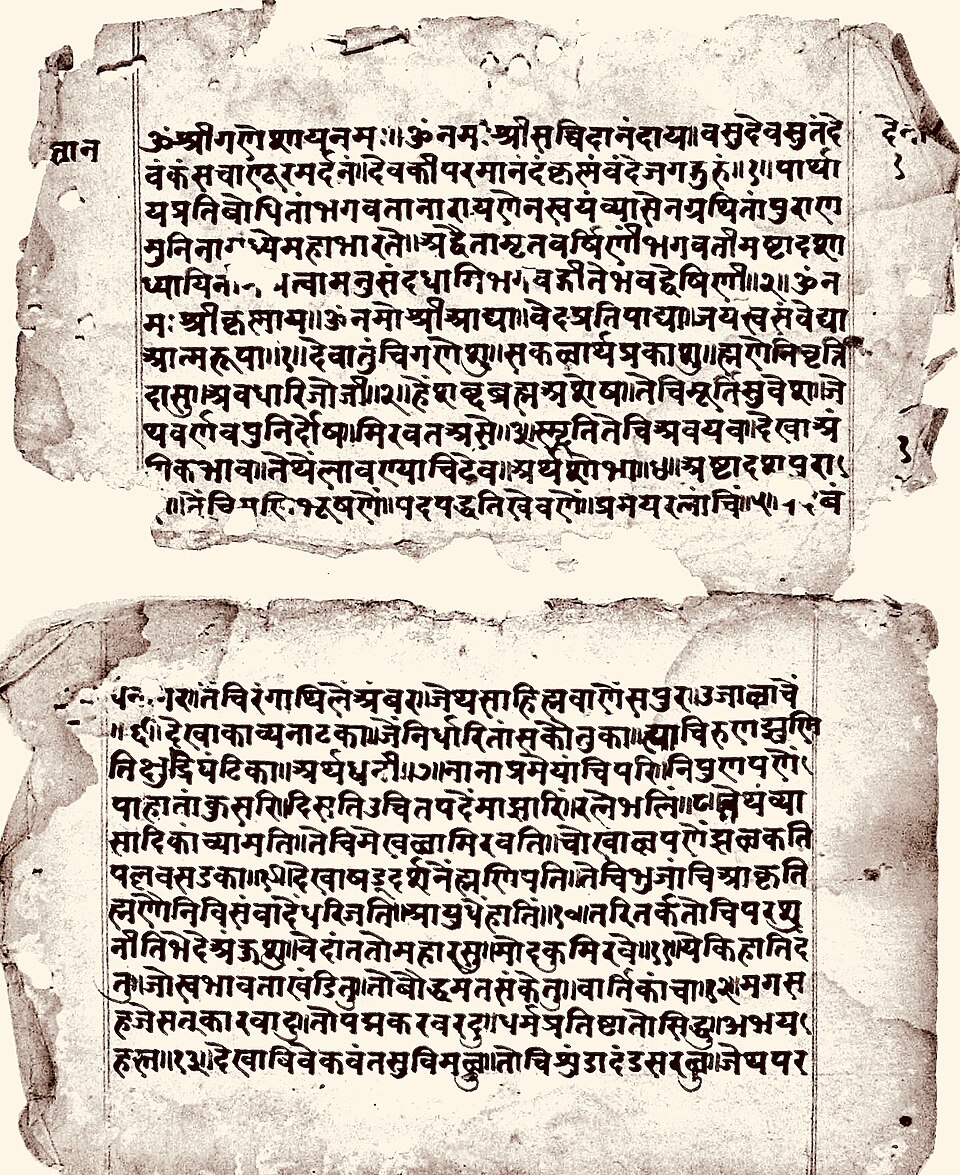 ॐ श्रीगणेशायनमः॥ॐनमःश्रीसच्चिदानंदाय॥वसुदेवसुतंदे
वंकंसचाणूरमर्दनं॥देवकीपरमानंदंकृस्नंवंदेजगतुरुं॥१॥पार्था
यप्रतिबोधितांभगवतानारायणेनस्वयंव्यासेनग्रथितांपुराण
मुनिनामध्येमहाभारते॥अद्वैतामृतवर्षिणींभगवतीमष्टादशा
ध्यायिनीं त्वामनुसंदधामिभगवद्गीतेभवद्वेषिणीं॥२॥ॐन
मःश्रीकृस्नाय॥ॐनमोश्रीआद्या॥वेदप्रतिपाद्या॥जयस्वसंवेद्या
आत्मरूपा॥१॥देवातुंचिगणेशु॥सकळार्थप्रकाशु॥ह्मणेनिवृत्ति
दासु॥अवधारिजोजी॥२॥हेशब्दब्रह्मअशेषा॥तेचिमूर्तिसुवेश॥जे
थवर्णवपुनिर्दोष॥मिरवतअसे॥३॥स्मृतितेचिअवयव॥देखाअं
गिकभाव॥तेथेंलावण्याचिठेव॥अर्थशोभा॥४॥अष्टादशपुरा
॥तेंचिमणिभूषणें॥पदपद्धतिखेवणें॥प्रमेयरत्नांचिं॥५॥ बं
नगर॥तेंचिरंगाथिलेंअंबर॥जेथसाहिह्मवाणेंसपुर॥उजाळाचें
॥६॥देखाकाव्यनाटका॥जेनिर्धारितांसकौतुका॥त्याचिरुणझुणि
तिक्षुद्रघंटिका॥अर्थधनी॥७॥नानाप्रमेयांचिपरि॥निपुणपणें
पाहातांकुसरि॥दिसतिउचितपदेंमाझारि॥रत्नेंभलिं॥८॥तेथंव्या
सादिकांच्यामति॥तेचिमेखळामिरवति॥चोखाळपणेंझळकति
पलवसडका॥९॥देखाषड्दर्शनेंह्मणिपति॥तेचिभुजांचिआकृति
ह्मणेनिविसंवादेधरिजति॥आयुधेंहातिं॥१०॥तरितर्कतोचिपरशु
नीतिभेदेअंकुशु॥वेदांततोमहारसु॥मोदकुमिरवे॥११॥येकिहातिदं
तु॥जोस्वभावताखंडितु॥तोबौद्धमतसंकेतु॥वार्तिकांचा॥१२॥मगस
हजेसत्कारवादु॥तोपद्मकरवरदु॥धर्मप्रतिष्ठातोसिद्धु॥अभय
हस्त॥१३॥देखाविवेकवंतसुविमळु॥तोचिशुंडादंडसरळु॥जेथपर